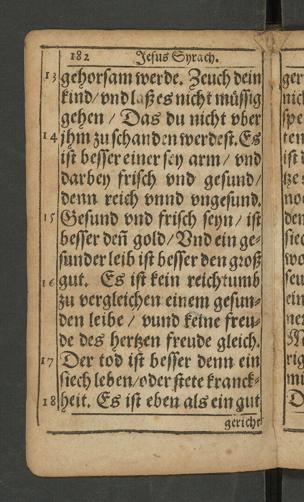 182 Jesus Syrach.
13 gehorsam werde. Zeuch dein
kind/ vnd laß es nicht müssig
gehen/ Das du nicht vber
14 jhm zu schanden werdest. Es
ist besser einer sey arm/ vnd
darbey frisch vnd gesund/
denn reich vnnd vngesund.
15 Gesund vnd frisch seyn/ ist
besser deñ gold/ Vnd ein ge-
sunder leib ist besser den groß
16 gut. Es ist kein reichtumb
zu vergleichen einem gesun-
den leibe/ vund keine freu-
de des hertzen freude gleich.
17 Der tod ist besser denn ein
siech leben/ oder stete kranck-
18 heit. Es ist eben als ein gut
gericht